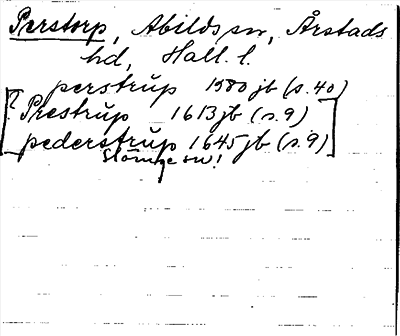 Perstorp, Abilds sn, Årstads
hd, Hall. l.
perstrup 1580 jb (s. 40)
[? Prestrup 1613 jb (s. 9)
pederstrup 1645 jb (s. 9)]
Slöinge sn!